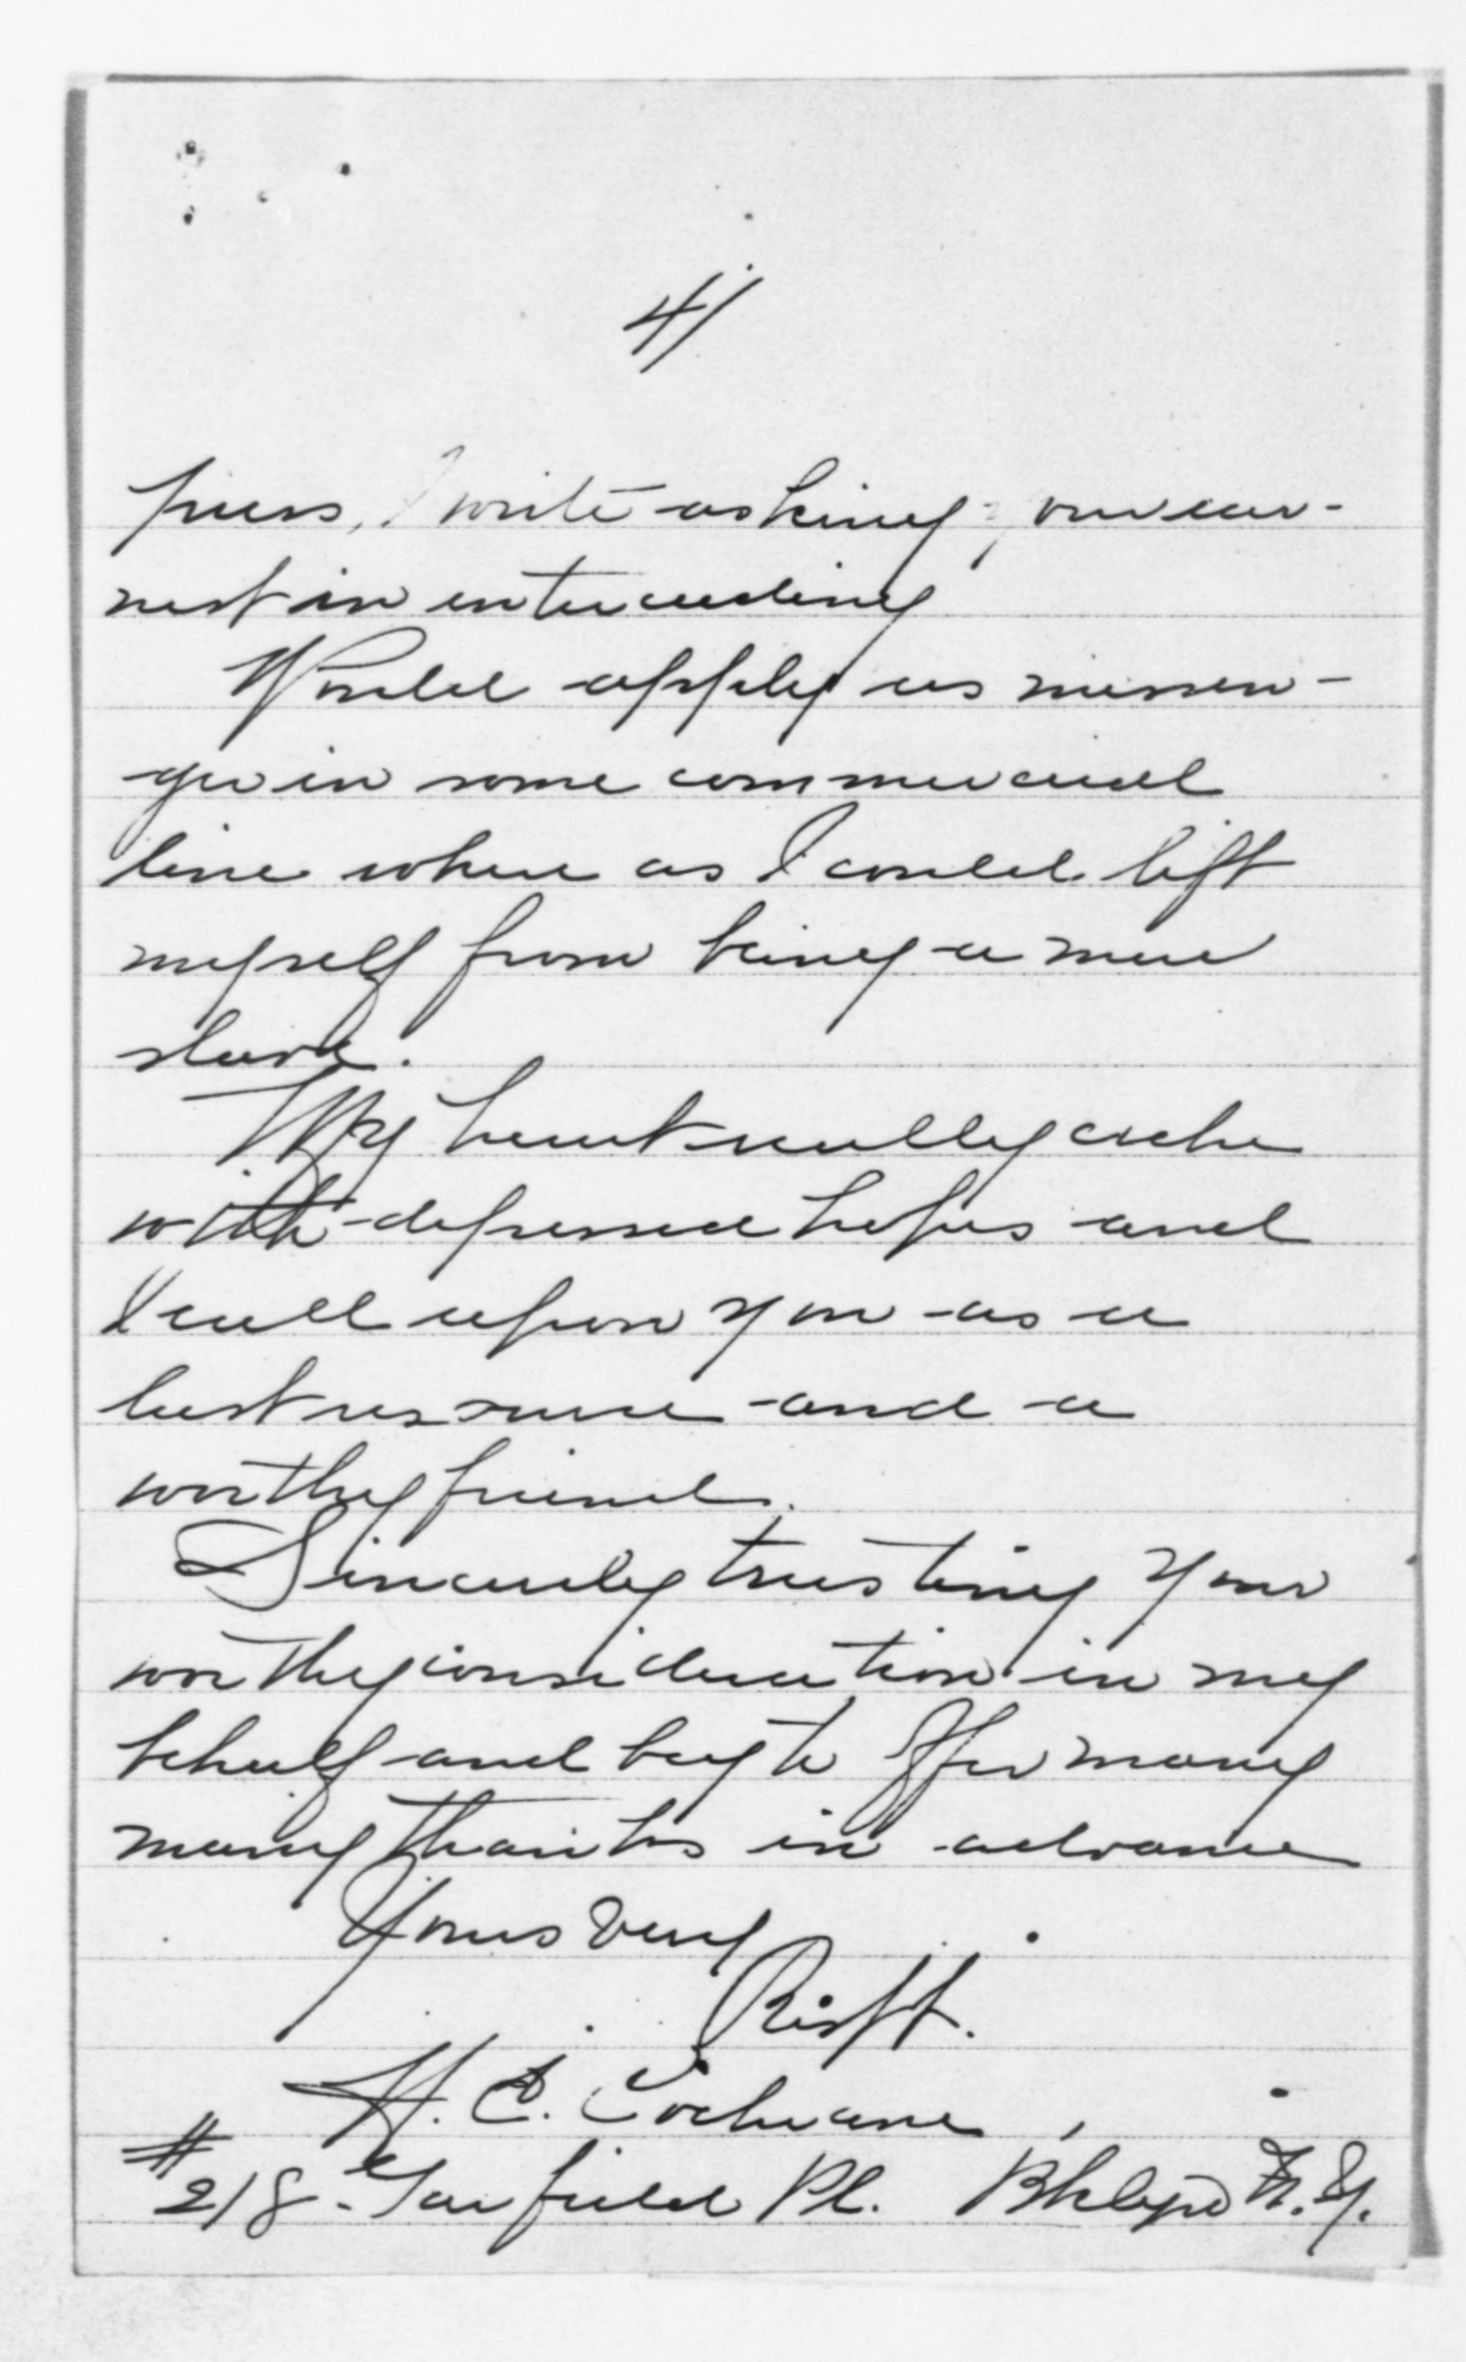 4/
press, I write asking your ear-
nest in interceeding
Would apply as messen-
ger in some commercial
line where as I could lift
myself from being a mere
slave.
My heart really ache
with depressed hopes and
I call upon you as a
last resource and a
worthy friend.
Sincerely trusting your
worthy consideration in my
behalf and beg to offer many
many thanks in advance
Yours Very
Risptt.
H. C. Cochrane,
#218 - Garfield Pl. Bklyn N.Y.